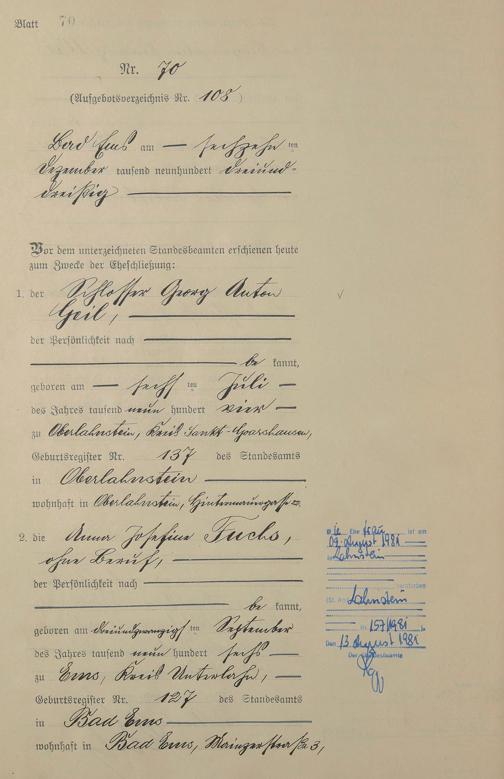 Blatt 70
Nr. 70
(Aufgebotsverzeichnis Nr. 108)
Bad Ems am — sechzehnten
Dezember tausend neunhundert dreiund-
dreißig
Vor dem unterzeichneten Standesbeamten erschienen heute
zum Zwecke der Eheschließung:
1. der Schlosser Georg Anton
Geil,
der Persönlichkeit nach
be kannt,
geboren am — sechsten Juli —
des Jahres tausend neun hundert vier —
zu Oberlahnstein, Kreis Sankt-Goarshausen,
Geburtsregister Nr. 137 des Standesamts
in Oberlahnstein
wohnhaft in Oberlahnstein, Hintermauergasse
2. die Anna Josefine Fuchs,
ohne Beruf,
der Persönlichkeit nach
be kannt,
geboren am dreiundzwanzigsten September
des Jahres tausend neun hundert sechs —
zu Ems, Kreis Unterlahn,
Geburtsregister Nr. 127 des Standesamts
in Bad Ems
wohnhaft in Bad Ems, Mainzerstraße 3,
Die Ehefrau ist am
09. August 1981
in Lahnstein
verstorben
(St. Amt Lahnstein
Nr. 157/1981
Den 13. August 1981
Der Standesbeamte